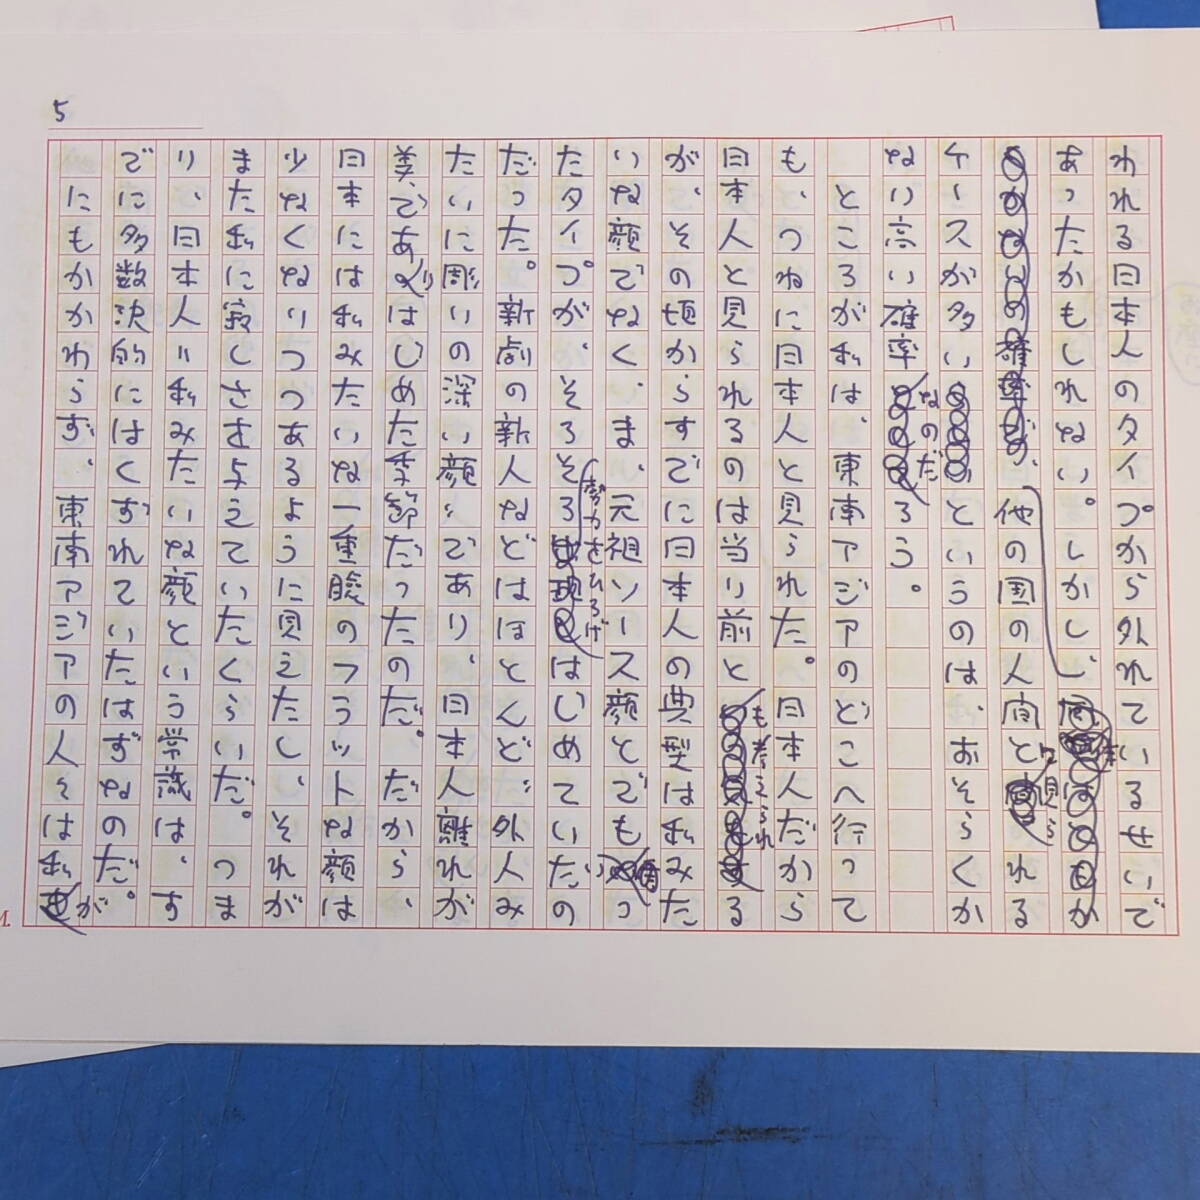 5
われる日本人のタイプから外れているせいで
あったかもしれない。しかし、
他の国の人間と見られる
ケースが多いというのは、おそらくか
なり高い確率なのだろう。
ところが私は、東南アジアのどこへ行って
も、つねに日本人と見られた。日本人だから
日本人と見られるのは当り前とも考えられる
が、その頃からすでに日本人の典型は私みた
いな顔でなく、まい、元祖ソース顔とでもいっ
たタイプが、そろそろ勢力をひろげはじめていたの
だった。新劇の新人などはほとんど〝外人み
たいに彫いの深い顔〟であり、日本人離れが
美であり はじめた季節だったのだ。だから、
日本には私みたいな一重瞼のフラットな顔は
少なくないつつあるように見えたし、それが
また私に寂しささ与えていたくらいだ。つま
り、日本人=私みたいな顔という常識は、す
でに多数決的にはくずれていたはずなのだ。
にもかかわらず、東南アジアの人々は私が